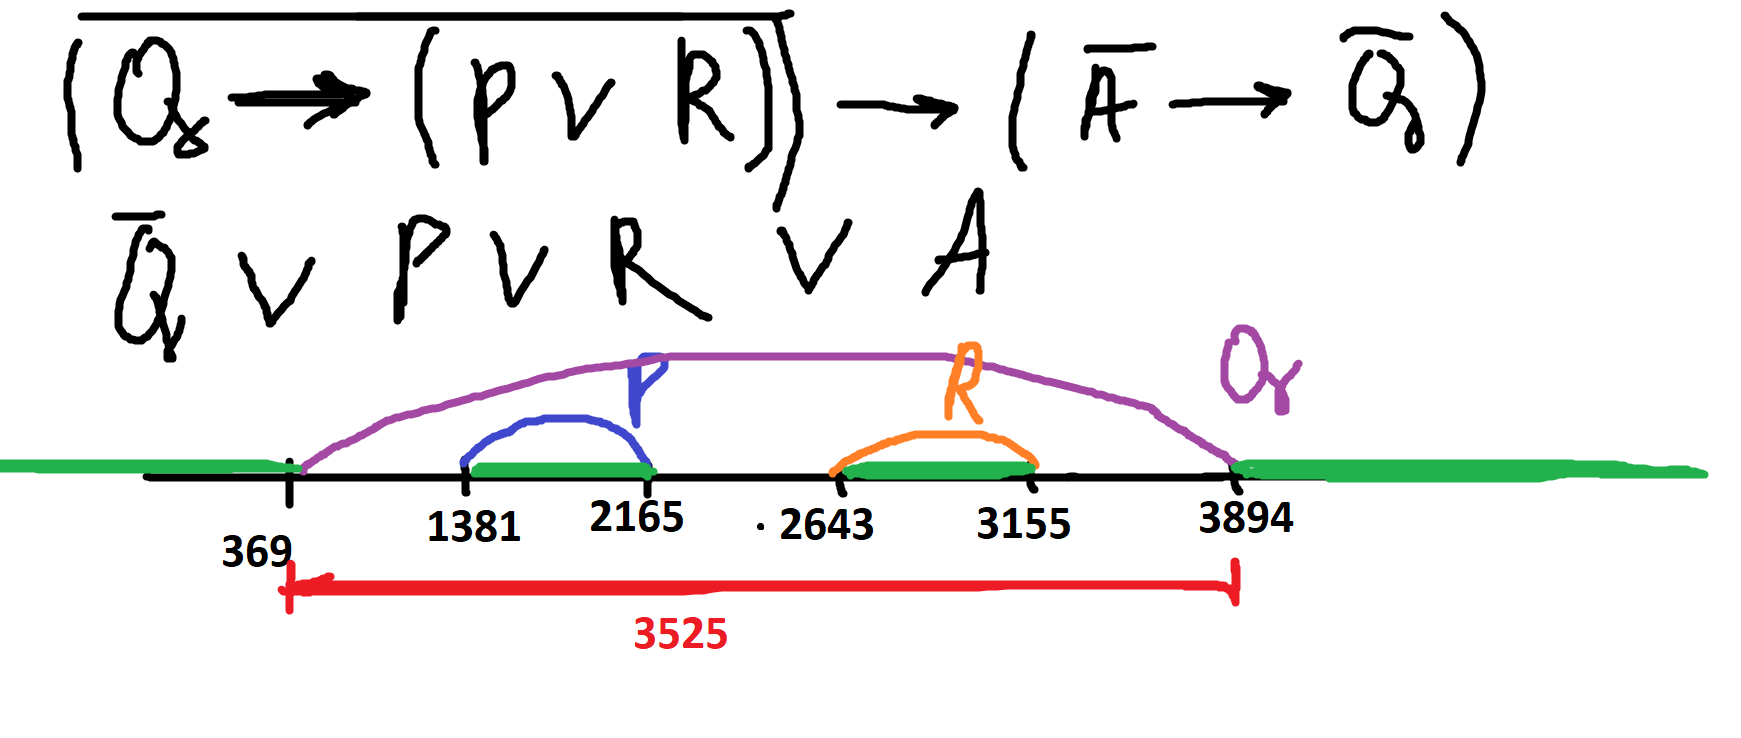 (Q → (P ∨ R)) → (A̅ → Q̅)
Q̅ ∨ P ∨ R ∨ A
P R Q
369 1381 2165 2643 3155 3894
3525